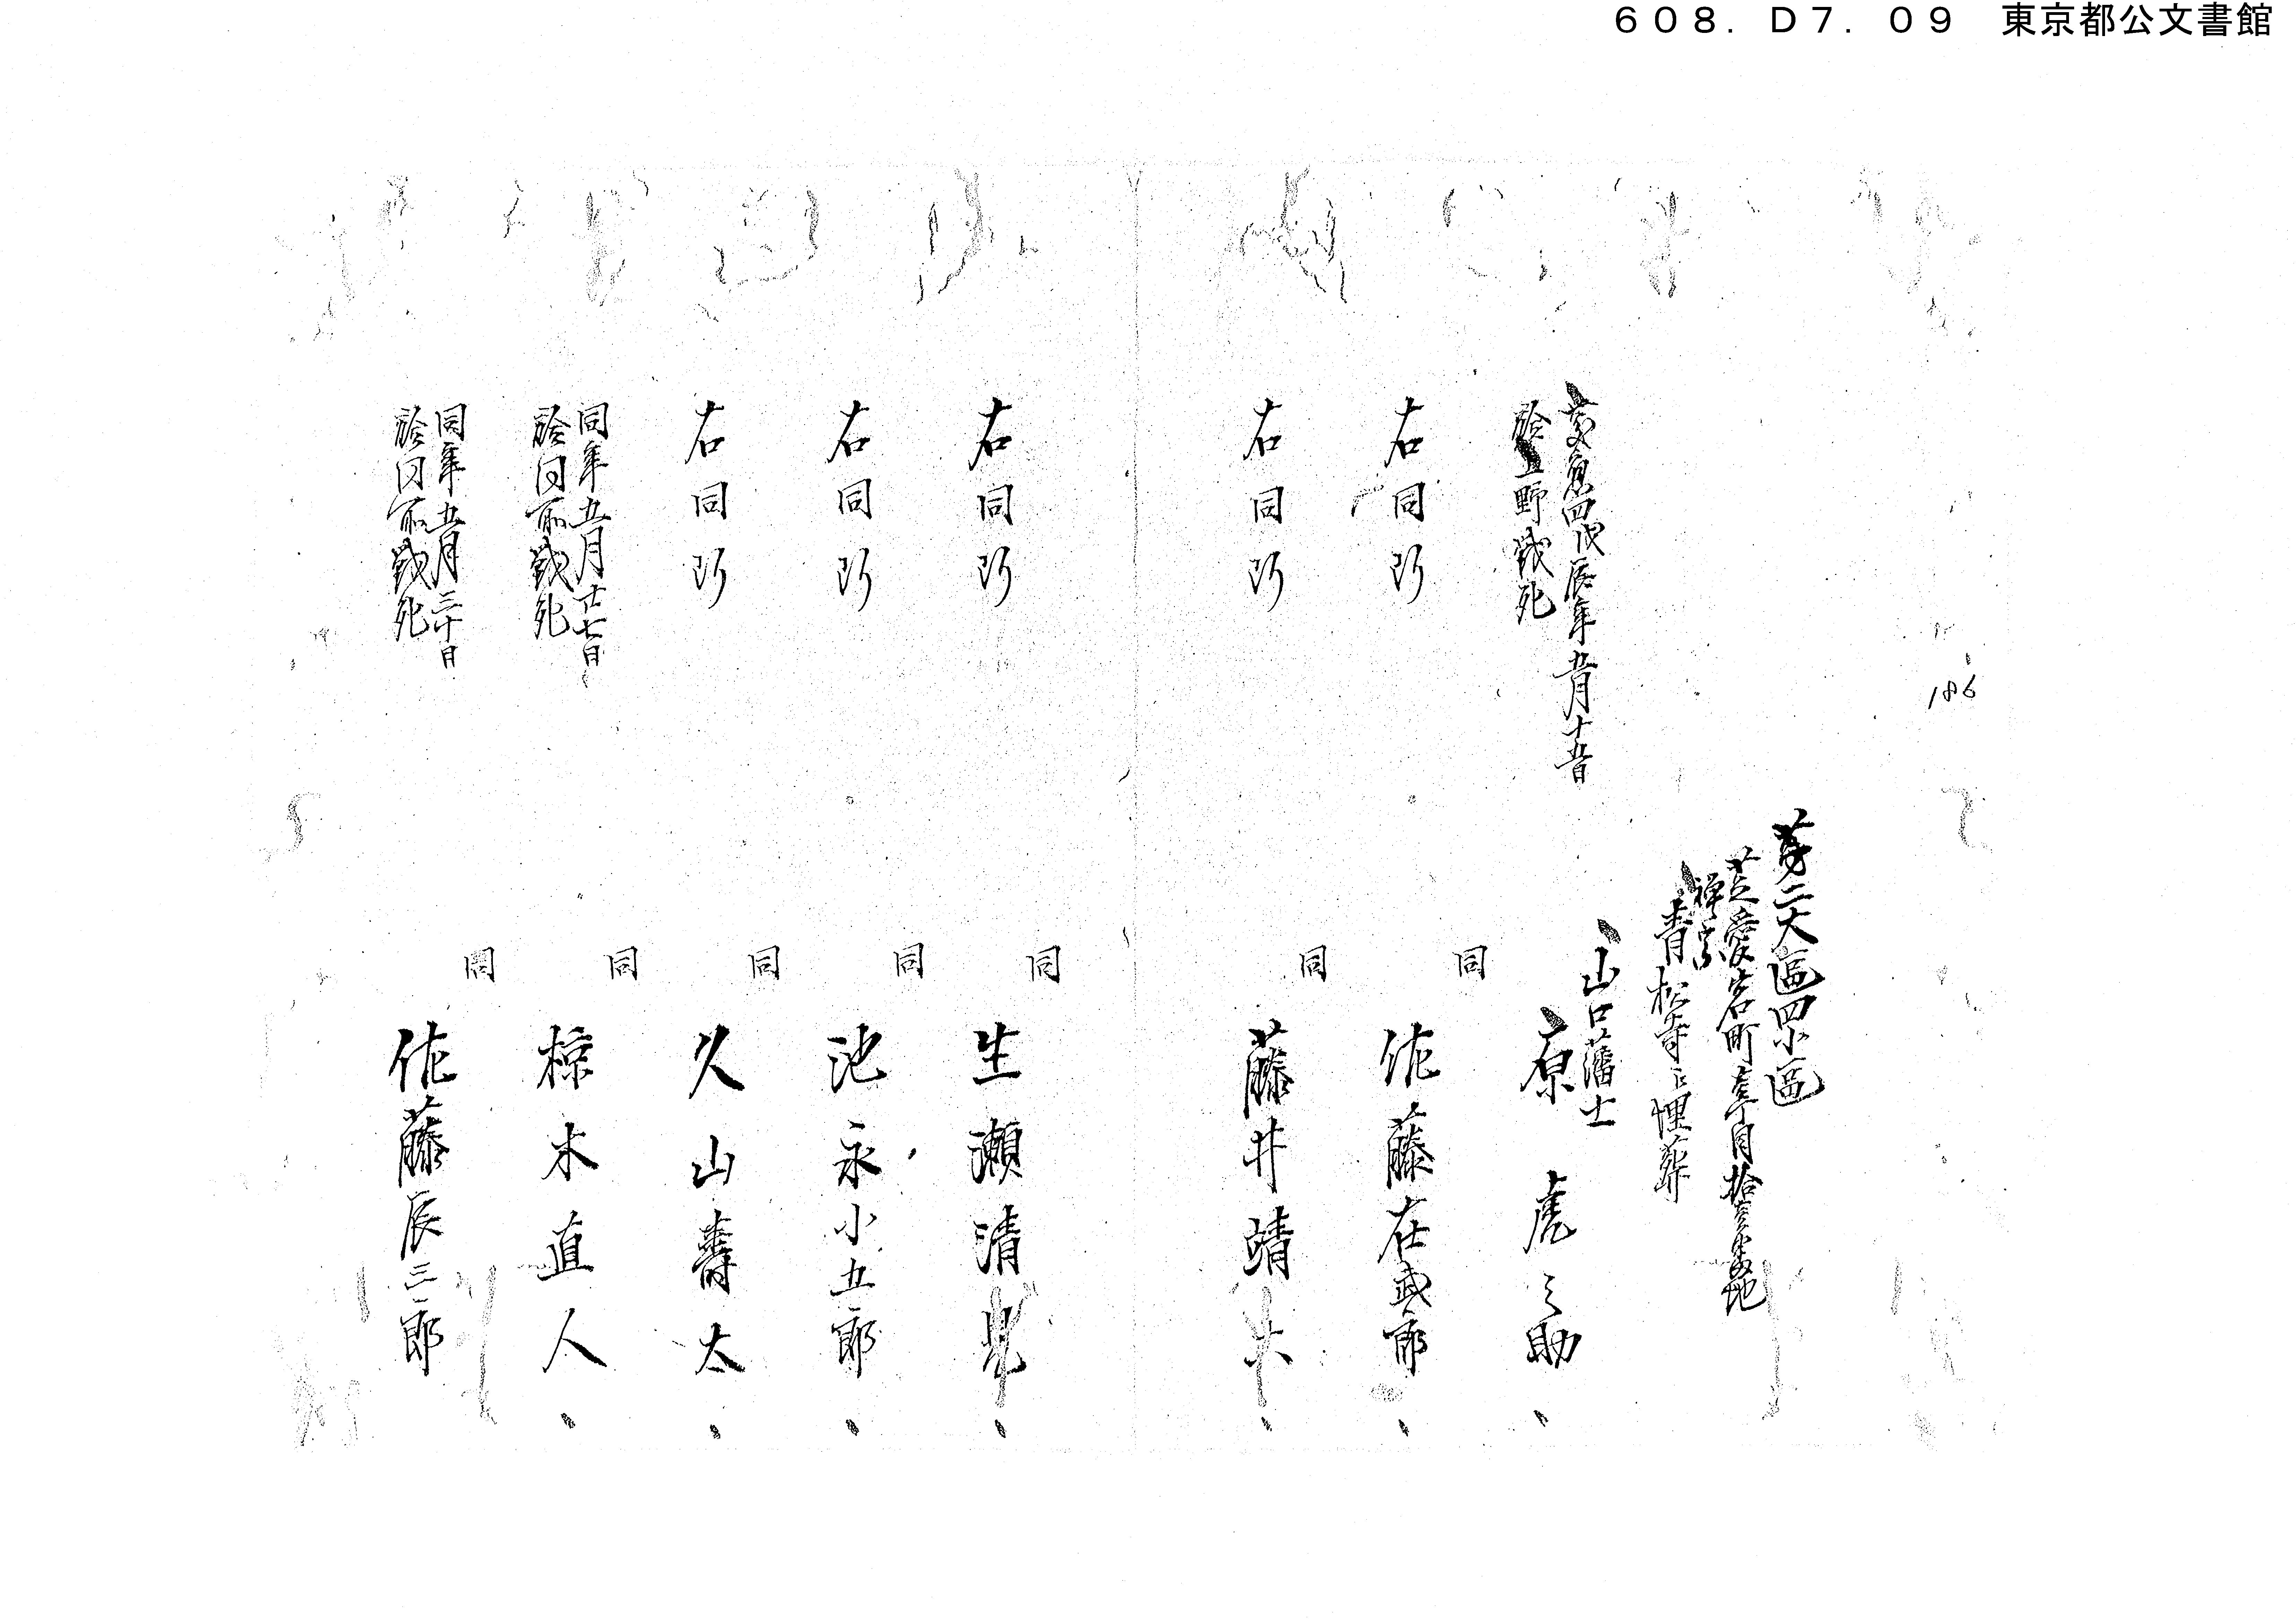 608.D7.09 東京都公文書館
186
第二大區四小區
芝愛宕町壱丁目拾壱番地
禅宗
青松寺ニ埋葬
慶應四戊辰年五月十五日
於上野戦死
山口藩士
原虎之助
右同所
同
佐藤在武郎
右同所
同
藤井靖夫
右同所
同
生瀬清見
右同所
同
池永小五郎
右同所
同
久山壽太
同年五月廿七日
於同所戦死
同
椋木直人
同年五月三十日
於同所戦死
同
佐藤辰三郎